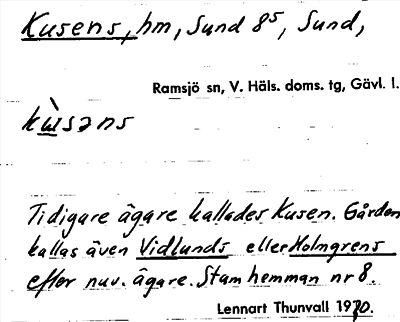 Kusens, hm, Sund 8⁵, Sund,
Ramsjö sn, V. Häls. doms. tg, Gävl. l.
kɯ̀səns
Tidigare ägare kallades Kusen. Gården
kallas även Vidlunds eller Holmgrens
efter nuv. ägare. Stamhemman nr 8.
Lennart Thunvall 1970.